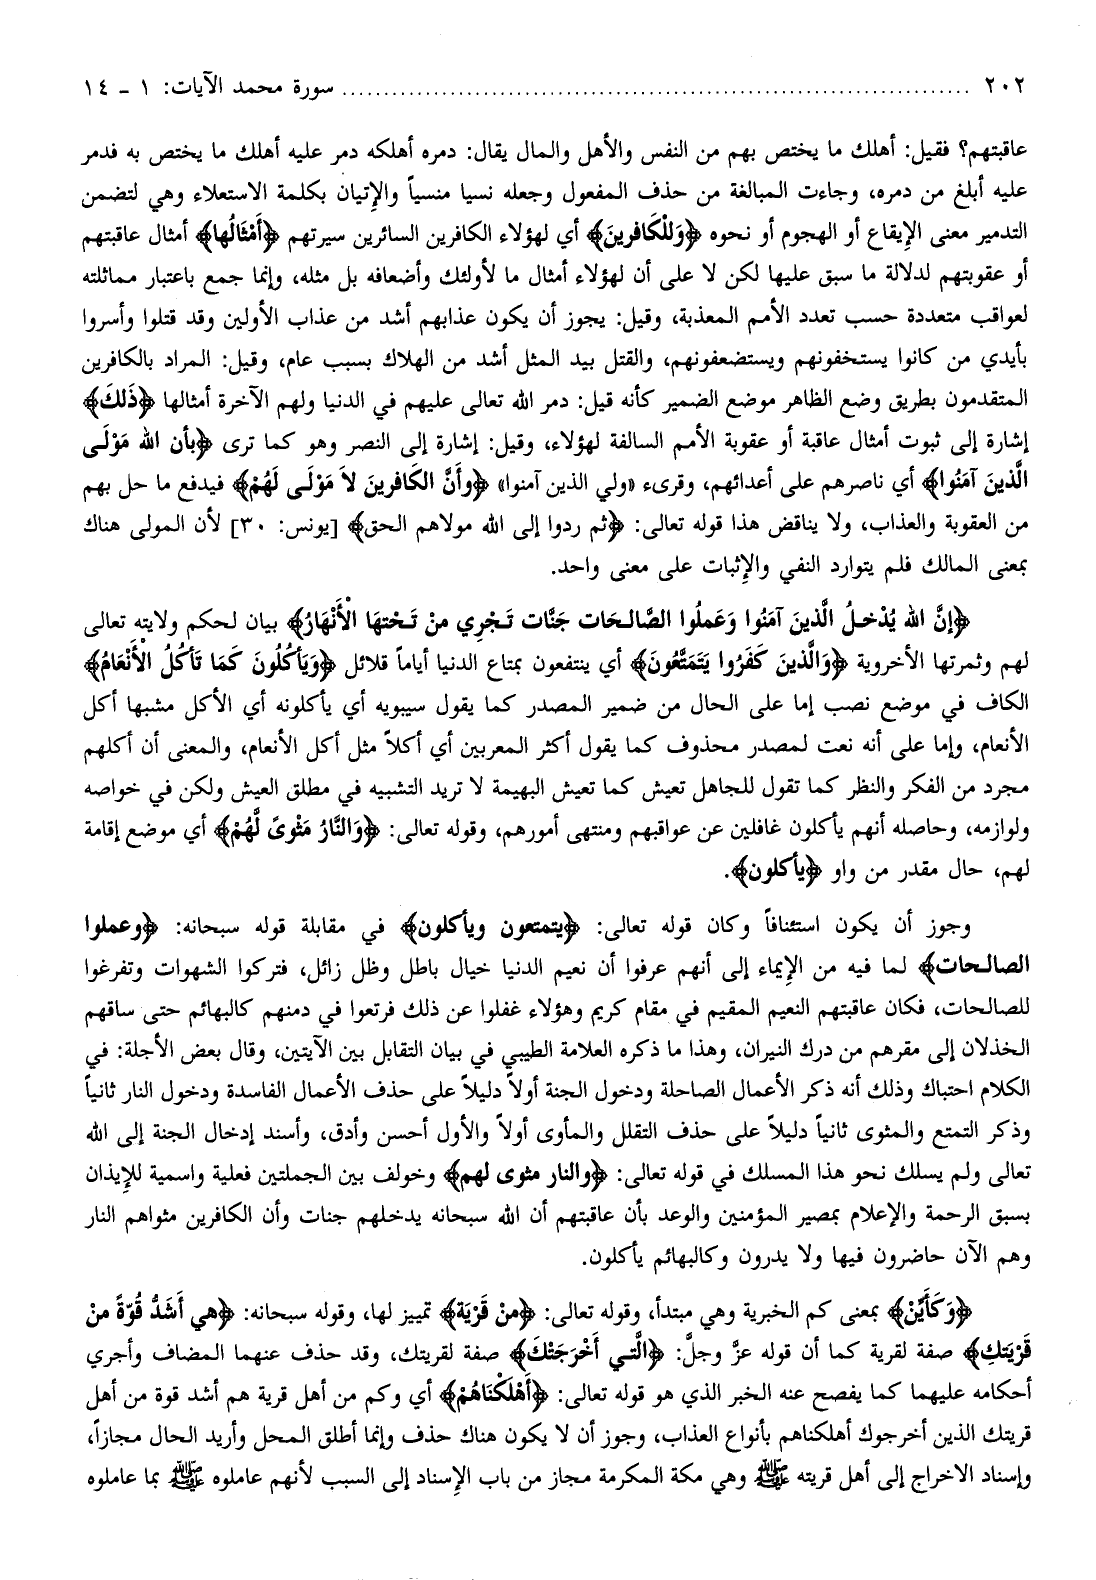 ٢٠٢ ........................................................................... سورة محمد الآيات: ١ ـ ١٤
عاقبتهم؟ فقيل: أهلك ما يختص بهم من النفس والأهل والمال يقال: دمره أهلكه دمر عليه أهلك ما يختص به فدمر
عليه أبلغ من دمره، وجاءت المبالغة من حذف المفعول وجعله نسيا منسياً والإتيان بكلمة الاستعلاء وهي لتضمن
التدمير معنى الإيقاع أو الهجوم أو نحوه ﴿وَللْكَافرينَ﴾ أي لهؤلاء الكافرين السائرين سيرتهم ﴿أَمْثَالُها﴾ أمثال عاقبتهم
أو عقوبتهم لدلالة ما سبق عليها لكن لا على أن لهؤلاء أمثال ما لأولئك وأضعافه بل مثله، وإنما جمع باعتبار مماثلته
لعواقب متعددة حسب تعدد الأمم المعذبة، وقيل: يجوز أن يكون عذابهم أشد من عذاب الأولين وقد قتلوا وأسروا
بأيدي من كانوا يستخفونهم ويستضعفونهم، والقتل بيد المثل أشد من الهلاك بسبب عام، وقيل: المراد بالكافرين
المتقدمون بطريق وضع الظاهر موضع الضمير كأنه قيل: دمر الله تعالى عليهم في الدنيا ولهم الآخرة أمثالها ﴿ذَلكَ﴾
إشارة إلى ثبوت أمثال عاقبة أو عقوبة الأمم السالفة لهؤلاء، وقيل: إشارة إلى النصر وهو كما ترى ﴿بأن الله مَوْلَى
الَّذينَ آمَنُوا﴾ أي ناصرهم على أعدائهم، وقرىء «ولي الذين آمنوا» ﴿وأَنَّ الكَافرينَ لاَ مَوْلَى لَهُمْ﴾ فيدفع ما حل بهم
من العقوبة والعذاب، ولا يناقض هذا قوله تعالى: ﴿ثم ردوا إلى الله مولاهم الحق﴾ [يونس: ٣٠] لأن المولى هناك
بمعنى المالك فلم يتوارد النفي والإثبات على معنى واحد.
﴿إنَّ الله يُدْخلُ الَّذينَ آمَنُوا وَعَملُوا الصَّالحَات جَنَّات تَجْري منْ تَحْتهَا الأَنْهَارُ﴾ بيان لحكم ولايته تعالى
لهم وثمرتها الأخروية ﴿وَالَّذينَ كَفَرُوا يَتَمَتَّعُونَ﴾ أي ينتفعون بمتاع الدنيا أياماً قلائل ﴿وَيَأكُلُونَ كَمَا تَأكُلُ الأَنْعَامُ﴾
الكاف في موضع نصب إما على الحال من ضمير المصدر كما يقول سيبويه أي يأكلونه أي الأكل مشبها أكل
الأنعام، وإما على أنه نعت لمصدر محذوف كما يقول أكثر المعربين أي أكلاً مثل أكل الأنعام، والمعنى أن أكلهم
مجرد من الفكر والنظر كما تقول للجاهل تعيش كما تعيش البهيمة لا تريد التشبيه في مطلق العيش ولكن في خواصه
ولوازمه، وحاصله أنهم يأكلون غافلين عن عواقبهم ومنتهى أمورهم، وقوله تعالى: ﴿وَالنَّارُ مَثْوىً لَّهُمْ﴾ أي موضع إقامة
لهم، حال مقدر من واو ﴿يأكلون﴾.
وجوز أن يكون استئنافاً وكان قوله تعالى: ﴿يتمتعون ويأكلون﴾ في مقابلة قوله سبحانه: ﴿وعملوا
الصالحات﴾ لما فيه من الإيماء إلى أنهم عرفوا أن نعيم الدنيا خيال باطل وظل زائل، فتركوا الشهوات وتفرغوا
للصالحات، فكان عاقبتهم النعيم المقيم في مقام كريم وهؤلاء غفلوا عن ذلك فرتعوا في دمنهم كالبهائم حتى ساقهم
الخذلان إلى مقرهم من درك النيران، وهذا ما ذكره العلامة الطيبي في بيان التقابل بين الآيتين، وقال بعض الأجلة: في
الكلام احتباك وذلك أنه ذكر الأعمال الصاحلة ودخول الجنة أولاً دليلاً على حذف الأعمال الفاسدة ودخول النار ثانياً
وذكر التمتع والمثوى ثانياً دليلاً على حذف التقلل والمأوى أولاً والأول أحسن وأدق، وأسند إدخال الجنة إلى الله
تعالى ولم يسلك نحو هذا المسلك في قوله تعالى: ﴿والنار مثوى لهم﴾ وخولف بين الجملتين فعلية واسمية للإيذان
بسبق الرحمة والإعلام بمصير المؤمنين والوعد بأن عاقبتهم أن الله سبحانه يدخلهم جنات وأن الكافرين مثواهم النار
وهم الآن حاضرون فيها ولا يدرون وكالبهائم يأكلون.
﴿وَكَأَيِّنْ﴾ بمعنى كم الخبرية وهي مبتدأ، وقوله تعالى: ﴿منْ قَرْيَة﴾ تمييز لها، وقوله سبحانه: ﴿هي أَشَدُّ قُوّةً منْ
قَرْيَتك﴾ صفة لقرية كما أن قوله عزَّ وجلَّ: ﴿الَّتي أَخْرَجَتْكَ﴾ صفة لقريتك، وقد حذف عنهما المضاف وأجري
أحكامه عليهما كما يفصح عنه الخبر الذي هو قوله تعالى: ﴿أَهْلَكْنَاهُمْ﴾ أي وكم من أهل قرية هم أشد قوة من أهل
قريتك الذين أخرجوك أهلكناهم بأنواع العذاب، وجوز أن لا يكون هناك حذف وإنما أطلق المحل وأريد الحال مجازاً،
وإسناد الاخراج إلى أهل قريته ﷺ وهي مكة المكرمة مجاز من باب الإسناد إلى السبب لأنهم عاملوه ﷺ بما عاملوه